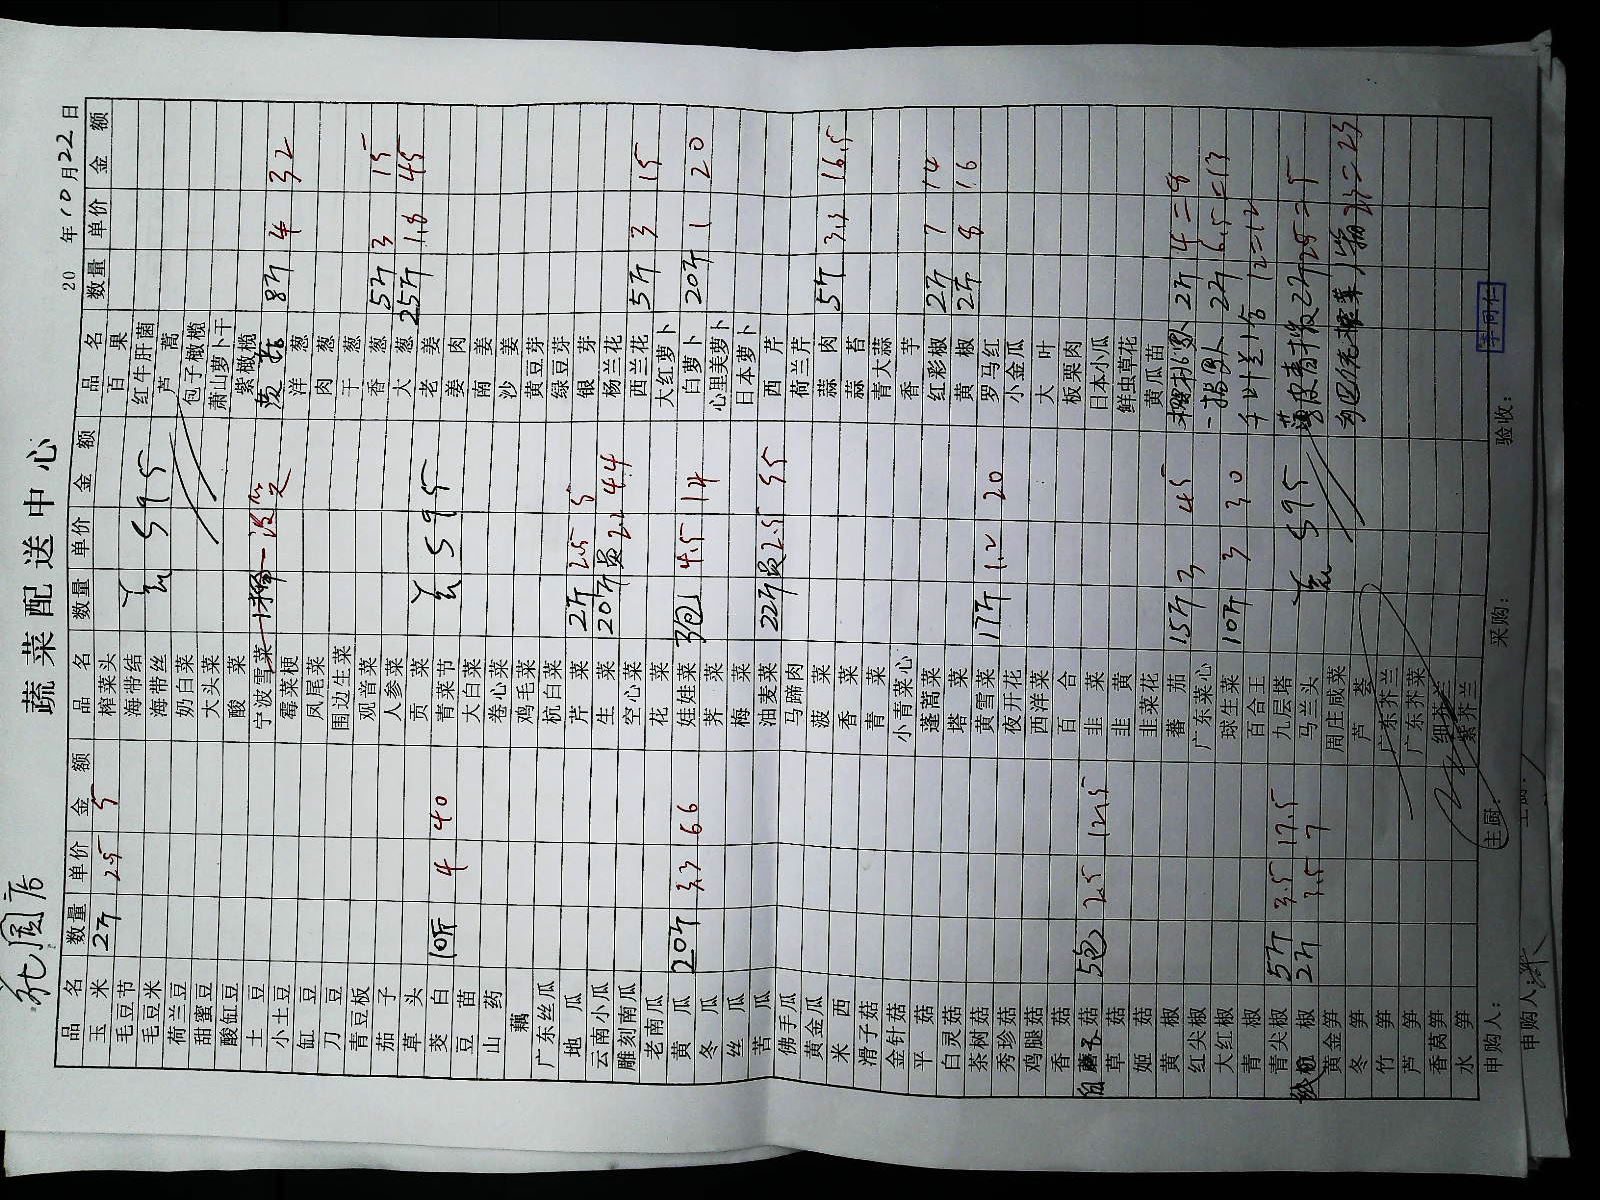 蔬菜配送中心
20 年10月22日
品名 数量 单价 金额 品名 数量 单价 金额 品名 数量 单价 金额
玉米 2斤 2.5 5 榨菜头 百果
毛豆节 海带结 红牛肝菌
毛豆米 海带丝 芦蒿
荷兰豆 奶白菜 包子橄榄
甜蜜豆 大头菜 萧山萝卜干
酸缸豆 酸菜 紫橄榄
土豆 宁波雪菜 8斤 4 32
小土豆 霉菜梗 洋葱
缸豆 凤尾菜 肉葱
刀豆 围边生菜 干葱
青豆板 观音菜 香葱 5斤 3 15
茄子 人参菜 大葱 25斤 1.8 45
草头 贡菜 老姜
茭白 10斤 4 40 青菜节 姜肉
豆苗 大白菜 南姜
山药 卷心菜 沙姜
藕 鸡毛菜 黄豆芽
广东丝瓜 杭白菜 绿豆芽
地瓜 芹菜 2斤 2.5 5 银芽
云南小瓜 生菜 20斤 2.2 44 杨兰花
雕刻南瓜 空心菜 西兰花 5斤 3 15
老南瓜 花菜 大红萝卜
黄瓜 20斤 3.3 66 娃娃菜 3包 4.5 14 白萝卜 20斤 1 20
冬瓜 荠菜 心里美萝卜
丝瓜 梅菜 日本萝卜
苦瓜 油麦菜 22斤 2.5 55 西芹
佛手瓜 马蹄肉 荷兰芹
黄金瓜 菠菜 蒜肉 5斤 3.3 16.5
米西 香菜 蒜苔
滑子菇 青菜 青大蒜
金针菇 小青菜心 香芋
平菇 蓬蒿菜 红彩椒 2斤 7 14
白灵菇 塔菜 黄椒 2斤 8 16
茶树菇 黄雪菜 17斤 1.2 20 罗马红
秀珍菇 夜开花 小金瓜
鸡腿菇 西洋菜 大叶
香菇 百合 板栗肉
菇 5包 2.5 12.5 韭菜 日本小瓜
草菇 韭黄 鲜虫草花
姬菇 韭菜花 黄瓜苗
黄椒 蕃茄 15斤 3 45 2斤 4=8
红尖椒 广东菜心 2斤 6.5=13
大红椒 球生菜 10斤 3 30 12=12
青椒 百合王
青尖椒 5斤 3.5 17.5 九层塔
椒 2斤 3.5 7 马兰头
黄金笋 周庄咸菜
冬笋 芦荟
竹笋 广东芥兰
芦笋 广东芥菜
香莴笋 细芥兰
水笋 紫芥兰
申购人： 主厨： 采购： 验收：
申购人：